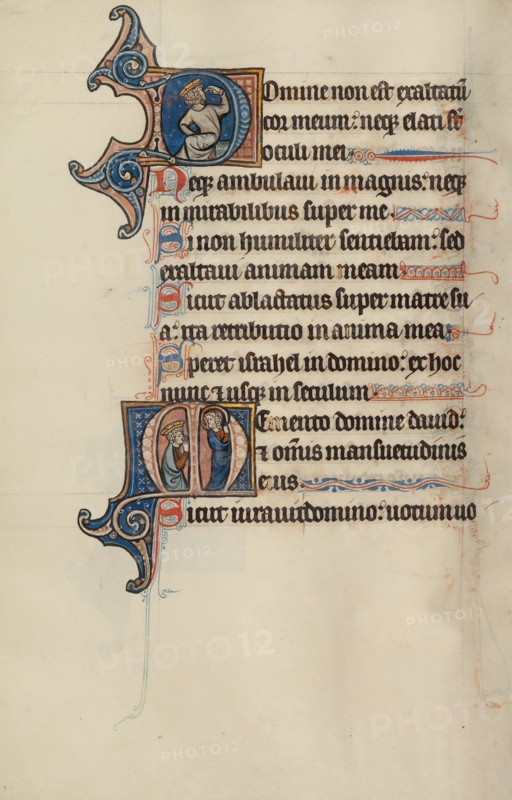 Domine non est exaltatū
cor meum: neqꝫ elati sūt
oculi mei.
Neqꝫ ambulaui in magnis: neqꝫ
in mirabilibus super me.
Si non humiliter sentiebam: sed
exaltaui animam meam.
Sicut ablactatus super matre su
a: ita retributio in anima mea.
Speret israhel in domino: ex hoc
nunc ⁊ usqꝫ in seculum.
Memento domine dauid:
⁊ om̄is mansuetudinis
eius.
Sicut iurauit domino: uotum uo
PHOTO12